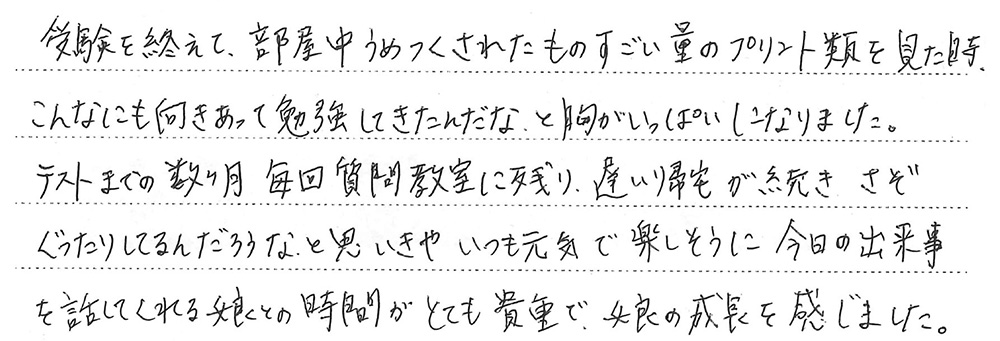 受験を終えて、部屋中うめつくされたものすごい量のプリント類を見た時、
こんなにも向きあって勉強してきたんだな、と胸がいっぱいになりました。
テストまでの数ヶ月 毎回質問教室に残り、遅い帰宅が続き さぞ
ぐったりしてるんだろうな、と思いきや いつも元気で楽しそうに今日の出来事
を話してくれる娘との時間がとても貴重で、娘の成長を感じました。